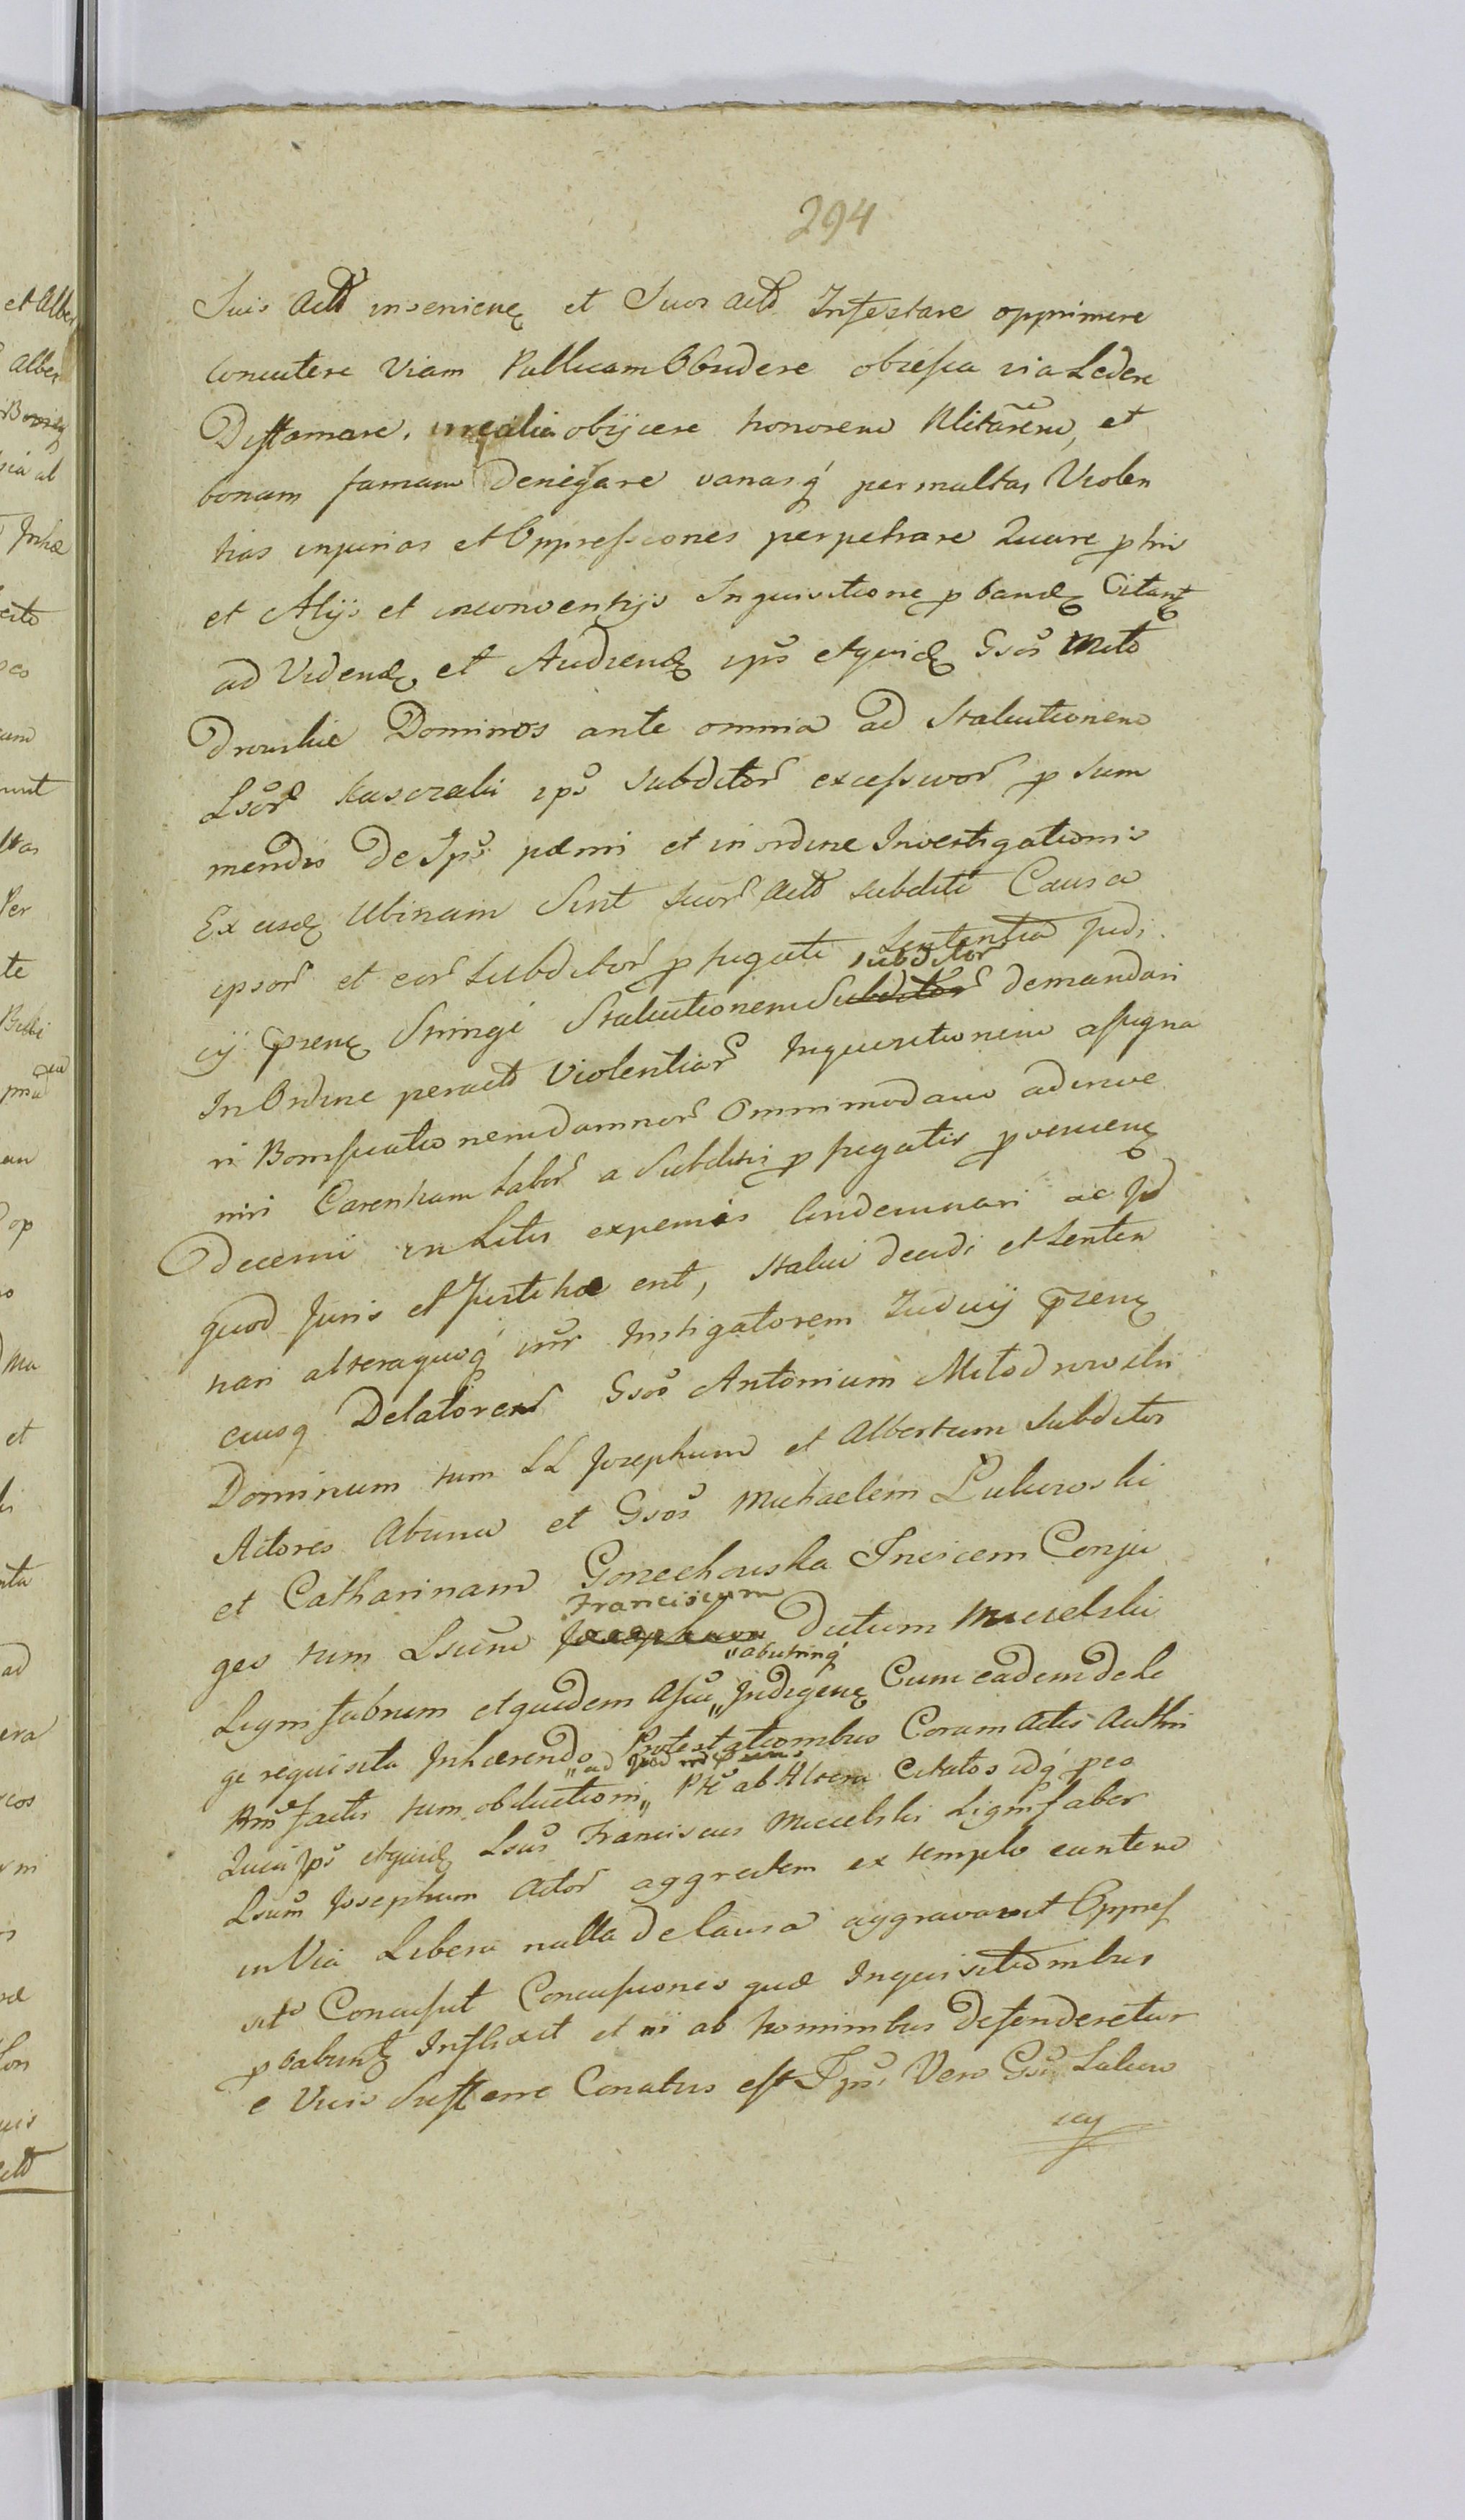 294
Suis Actõ insenienę et Suos Actõ Infestare opprimere
Concutere Viam Publicam Obsidere obsessa via Ledere
Diffamare, irrealia obijcere honorem Militarem, et
bonam famam Denigrare variasq́ permultas Violen
tias injurias et Oppressiones perpetrare Quare p his
et Alijs et inconventijs Inquisitione p bandę Citantę
ad Videndę et Audiendę ipõs etquidę Gsõs Miło
drowskie Dominos ante omnia ad Statuitionem
Lsõr Kaszczelii ipõ Subditor excessivor p sum
mendis De Ipõs pœni et in ordine Investigationis
Ex eisdę Ubinam Sint suor Actõ subditi Causa
ipsor et eor Subditor p fugati Sententia Judi
subditor
cij præsenę Stringi Statuitionem Subditor demandari
In Ordine peractõ Violentiar Inquisitionem assigna
ri Bonificationem damnor Omnimodam adinve
niri Carentiam Labor a Subditis p fugatis p venienę
Decerni in Litis expensis Condemnari ac Id
quod Juris et Justitiæ erit, Statui decidi et Senten
tiari alteraquoq́ Instigatorem Judicij præsenę
eiusq́ Delatorem Gsõs Antonium Miłodrowski
Dominum tum LL Josephum et Albertum Subditos
Actores Abuna et Gsõs Michaelem Łukowski
et Catharinam Gorzechowska Invicem Conju
Franciscum
ges tum Lsum Josephum Dictum Miecielski
"abutrinq́
Lignifabrum etquidem Assu" Indigenę Cum eadem de Le
ge requisita Inhærendo Protestationibus Coram Actis Authn
"ad
factis tum obductioni" Ptẽ ab Altera Citatos idq́ peo
Quia Ipõ etquidę Lsus Franciscus Miecielski Lignifaber
Lsum Josephum Actor aggreditem ex templo euntem
in Via Libera nulla de Causa aggravavit Oppres
sit Concussit Concussiones quæ Inquisitionibus
p babuntę Inflixit et ni ab hominibus defenderetur
e Vivis Sufferre Conatus est Ipõ Vero Gsi Lukow
scy